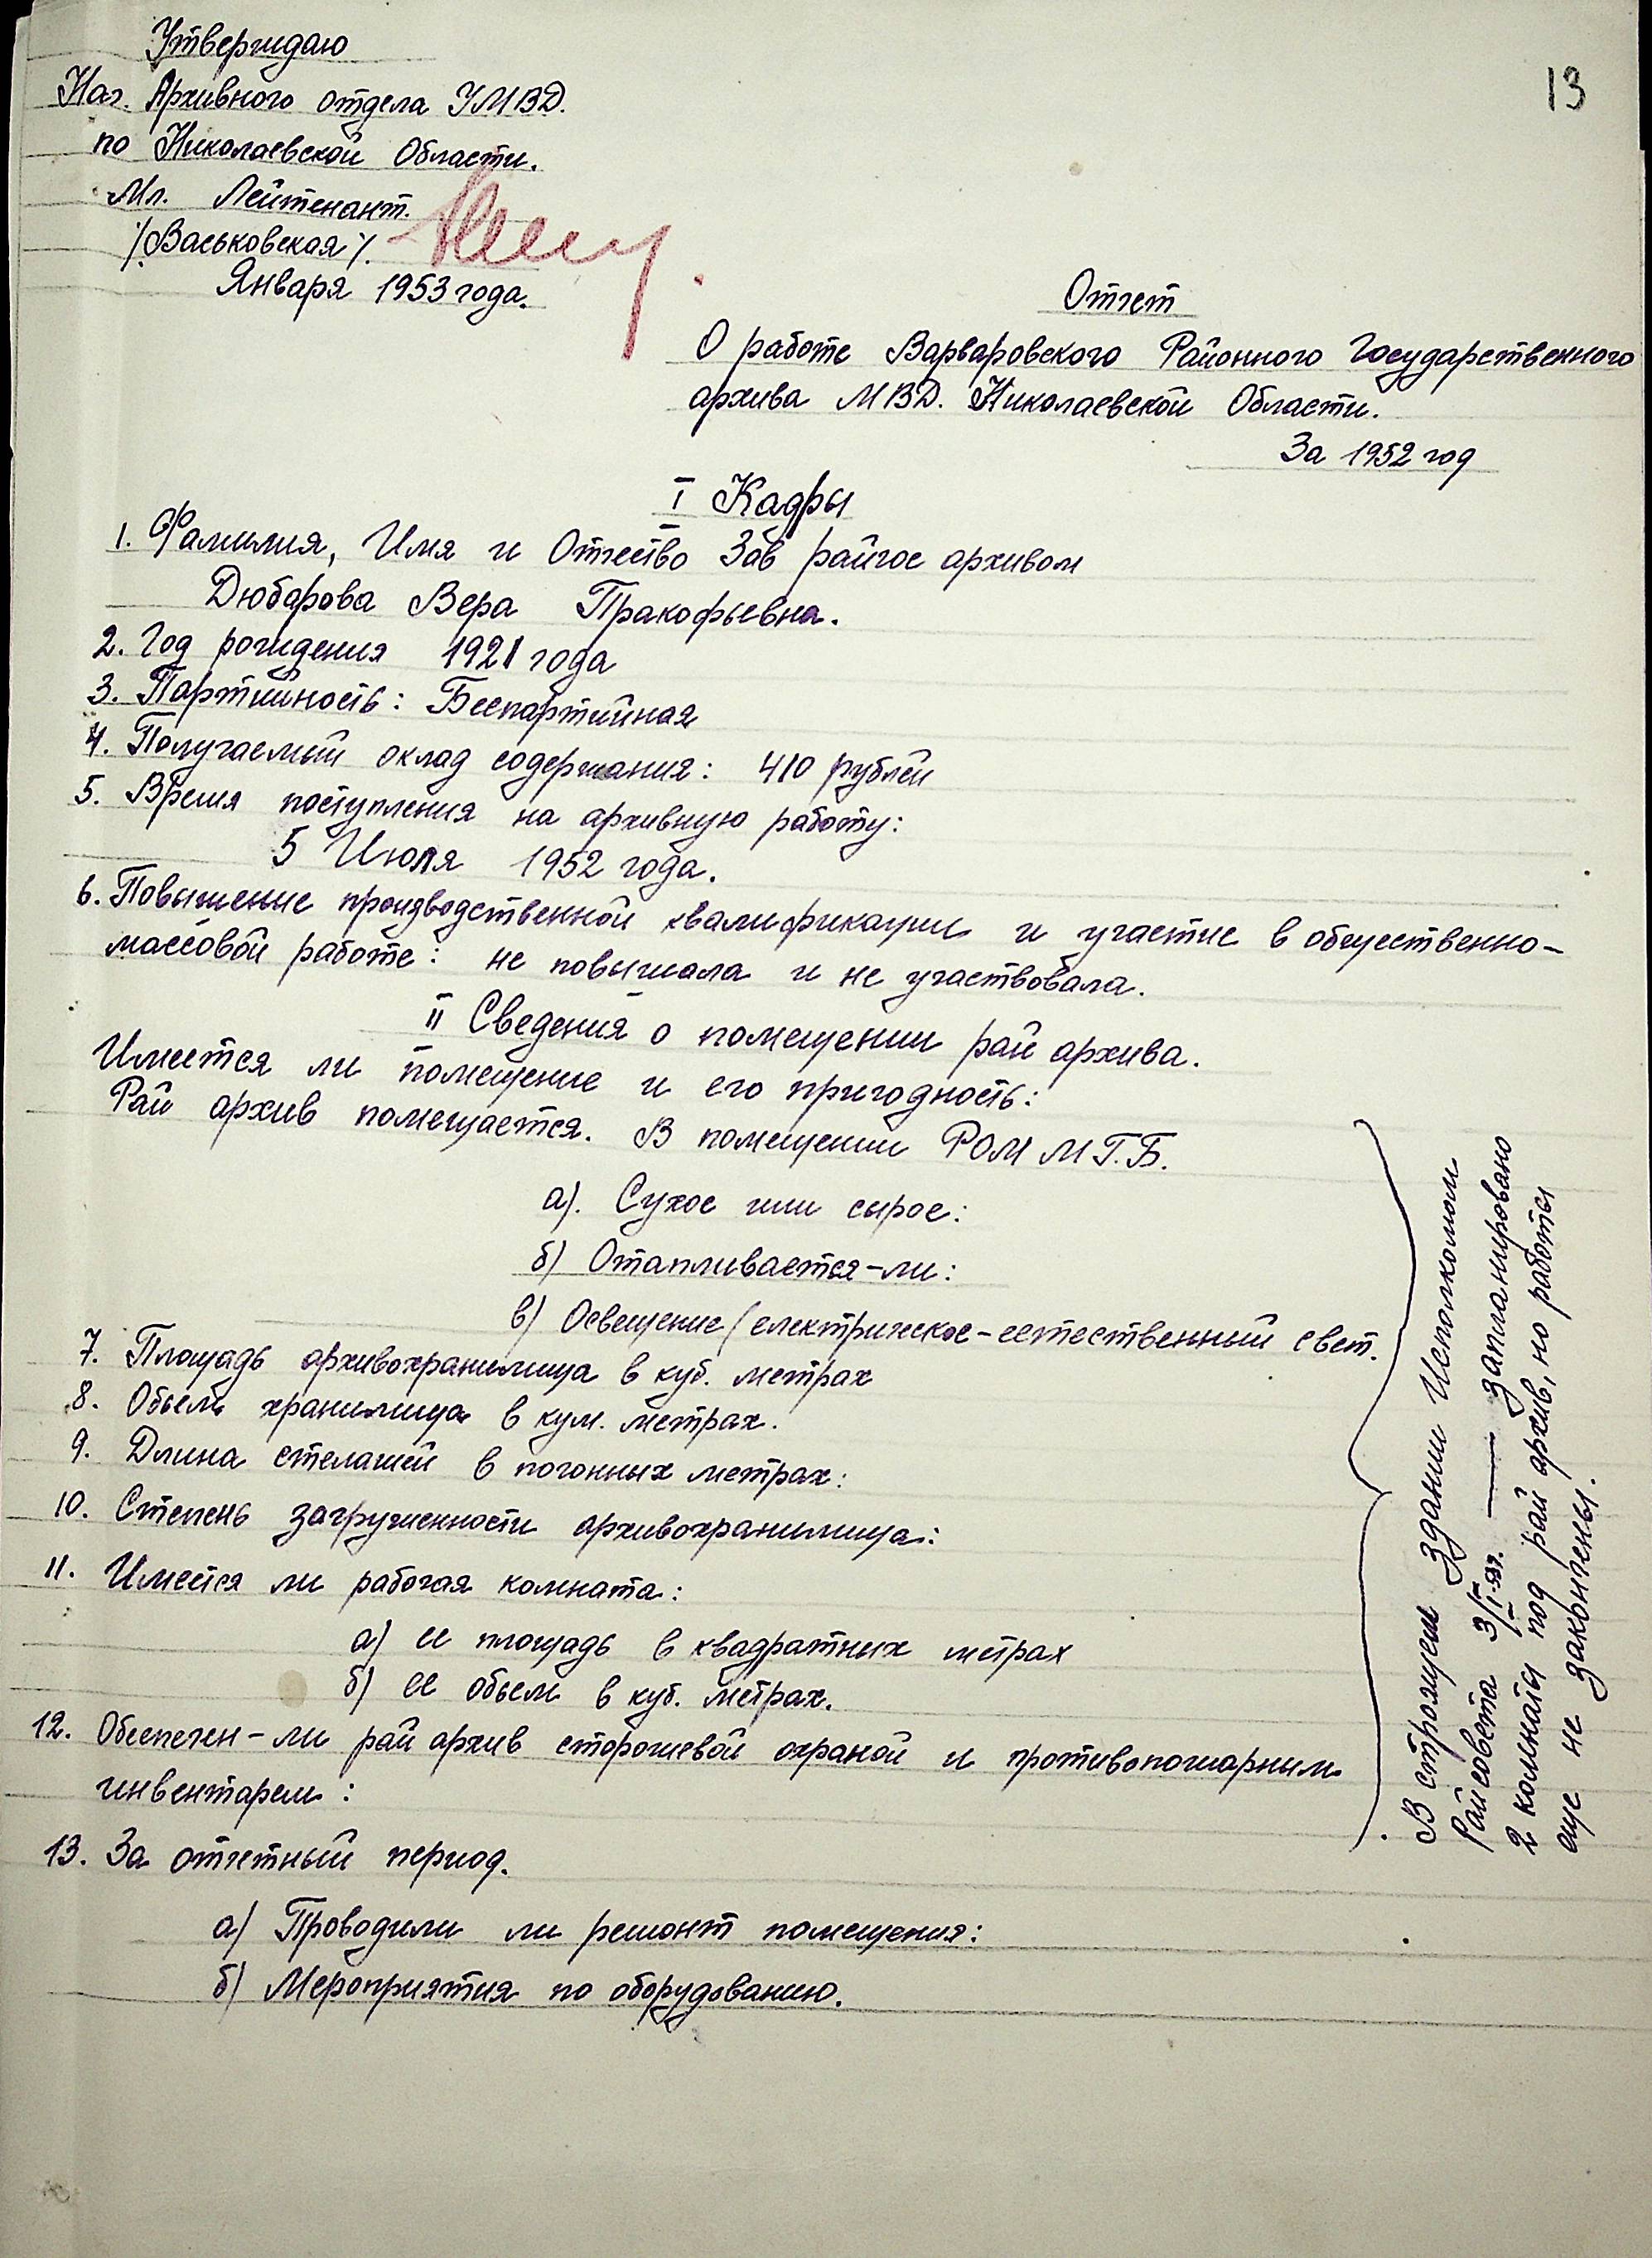 13
Утверждаю
Нач. Архивного отдела УМВД.
по Николаевской Области.
Мл. Лейтенант.
/Васьковская/.
Января 1953 года.
Отчет
О работе Варваровского Районного Государственного
архива МВД. Николаевской Области.
За 1952 год
I Кадры
1. Фамилия, Имя и Отчество Зав райгос архивом
Дюбарова Вера Пракофьевна.
2. Год рождения 1921 года
3. Партийность: Беспартийная
4. Получаемый оклад содержания: 410 рублей
5. Время поступления на архивную работу:
5 Июля 1952 года.
6. Повышение производственной квалификации и участие в общественно-
массовой работе: не повышала и не участвовала.
II Сведения о помещении рай архива.
Имеется ли помещение и его пригодность:
Рай архив помещается. В помещении РОМ М.Г.Б.
а). Сухое или сырое:
б) Отапливается-ли:
в) Освещение (електрическое-естественный свет.
7. Площадь архивохранилища в куб. метрах
8. Обьем хранилища в кум. метрах.
9. Длина стелажей в погонных метрах:
10. Степень загруженности архивохранилища:
11. Имеется ли рабочая комната:
а) ее площадь в квадратных метрах
б) ее обьем в куб. метрах.
12. Обеспечен-ли рай архив сторожевой охраной и противопожарным
инвентарем:
13. За отчетный период.
а) Проводили ли ремонт помещения:
б) Мероприятия по оборудованию.
В строящем здании Исполкомом
Райсовета — запланировано
2 комнаты под рай архив, но работы
еще не закончены.